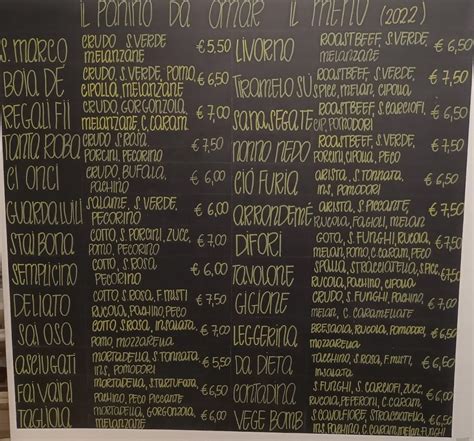 il Panino Da Omar il menù (2022)
S. MARCO CRUDO S.VERDE MELANZANE € 5,50
BOIA DÉ CRUDO, S.VERDE, POMO, CIPOLLA, MELANZANE € 6,50
REGALI FII CRUDO, GORGONZOLA, MELANZANE, C.CARAM. € 7,00
TANTA ROBA CRUDO S.ROSA, PORCINI, PECORINO € 7,50
CI ONCI CRUDO, BUFALA, PACHINO € 6,00
GUARDALUILI SALAME, S.VERDE, PECORINO € 6,00
STAI BONA COTTO, S.PORCINI, ZUCC, POMO, PECORINO € 7,00
SEMPLICINO COTTO, S.ROSA, PECORINO € 6,00
DELIATO COTTO S.ROSA, F.MISTI RUCOLA, PACHINO € 7,50
SAI OSA COTTO, S.ROSA, INSALATA POMO, MOZZARELLA € 7,00
ASCIUGATI MORTADELLA, S.TONNATA, INS, POMODORI € 5,50
FAI VAINI MORTADELLA, STARTUFATA, PACHINO, PECO PICCANTE € 6,50
TAGLIOLA MORTADELLA, GORGONZOLA, INSALATA € 6,00
LIVORNO ROASTBEEF, S.VERDE, MELANZANE € 6,50
TIRAMELO SU ROASTBEEF, S.VERDE, SPICE, MELAN, CIPOLLA € 7,50
SANA SEGATE ROASTBEEF, S.CARCIOFI, CIP, POMODORI € 6,50
NONNO NEDO ROASTBEEF, S.VERDE, PORCINI, CIPOLLA, PECO € 7,50
CIÓ FURIA ARISTA, S.TONNATA, INS, POMODORI € 6,50
ARRONDEMÉ ARISTA, S.PICCANTE, RUCOLA, FAGIOLI, MELAN € 7,50
DIFORI GOTA, S.FUNGHI, RUCOLA, MELAN, POMO, C.CARAM, PECO € 7,50
TAVOLONE SPALLA, STRACCIATELLA, S.PICC, RUCOLA, PACHINO, CIPOLLA € 7,50
GIGIONE CRUDO, S.FUNGHI, PACHINO, MELAN, C.CARAMELLATE € 7,00
LEGGERINA BRESAOLA, RUCOLA, POMODORI, MOZZARELLA
DA DIETA TACCHINO, S.ROSA, F.MISTI, INSALATA, POMODORI € 6,50
CONTADINA S.FUNGHI, S.CARCIOFI, ZUCC, RUCOLA, PEPERONI, C.CARAM.
VEGE BOMB S.CAVOLFIORE, STRACCIATELLA, INS, PACHINO, C.CARAM, MELAN, FUNGHI